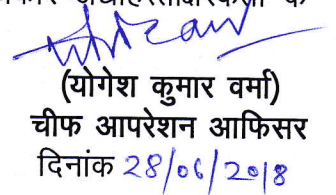 (योगेश कुमार वर्मा)
चीफ आपरेशन आफिसर
दिनांक 28/06/2018